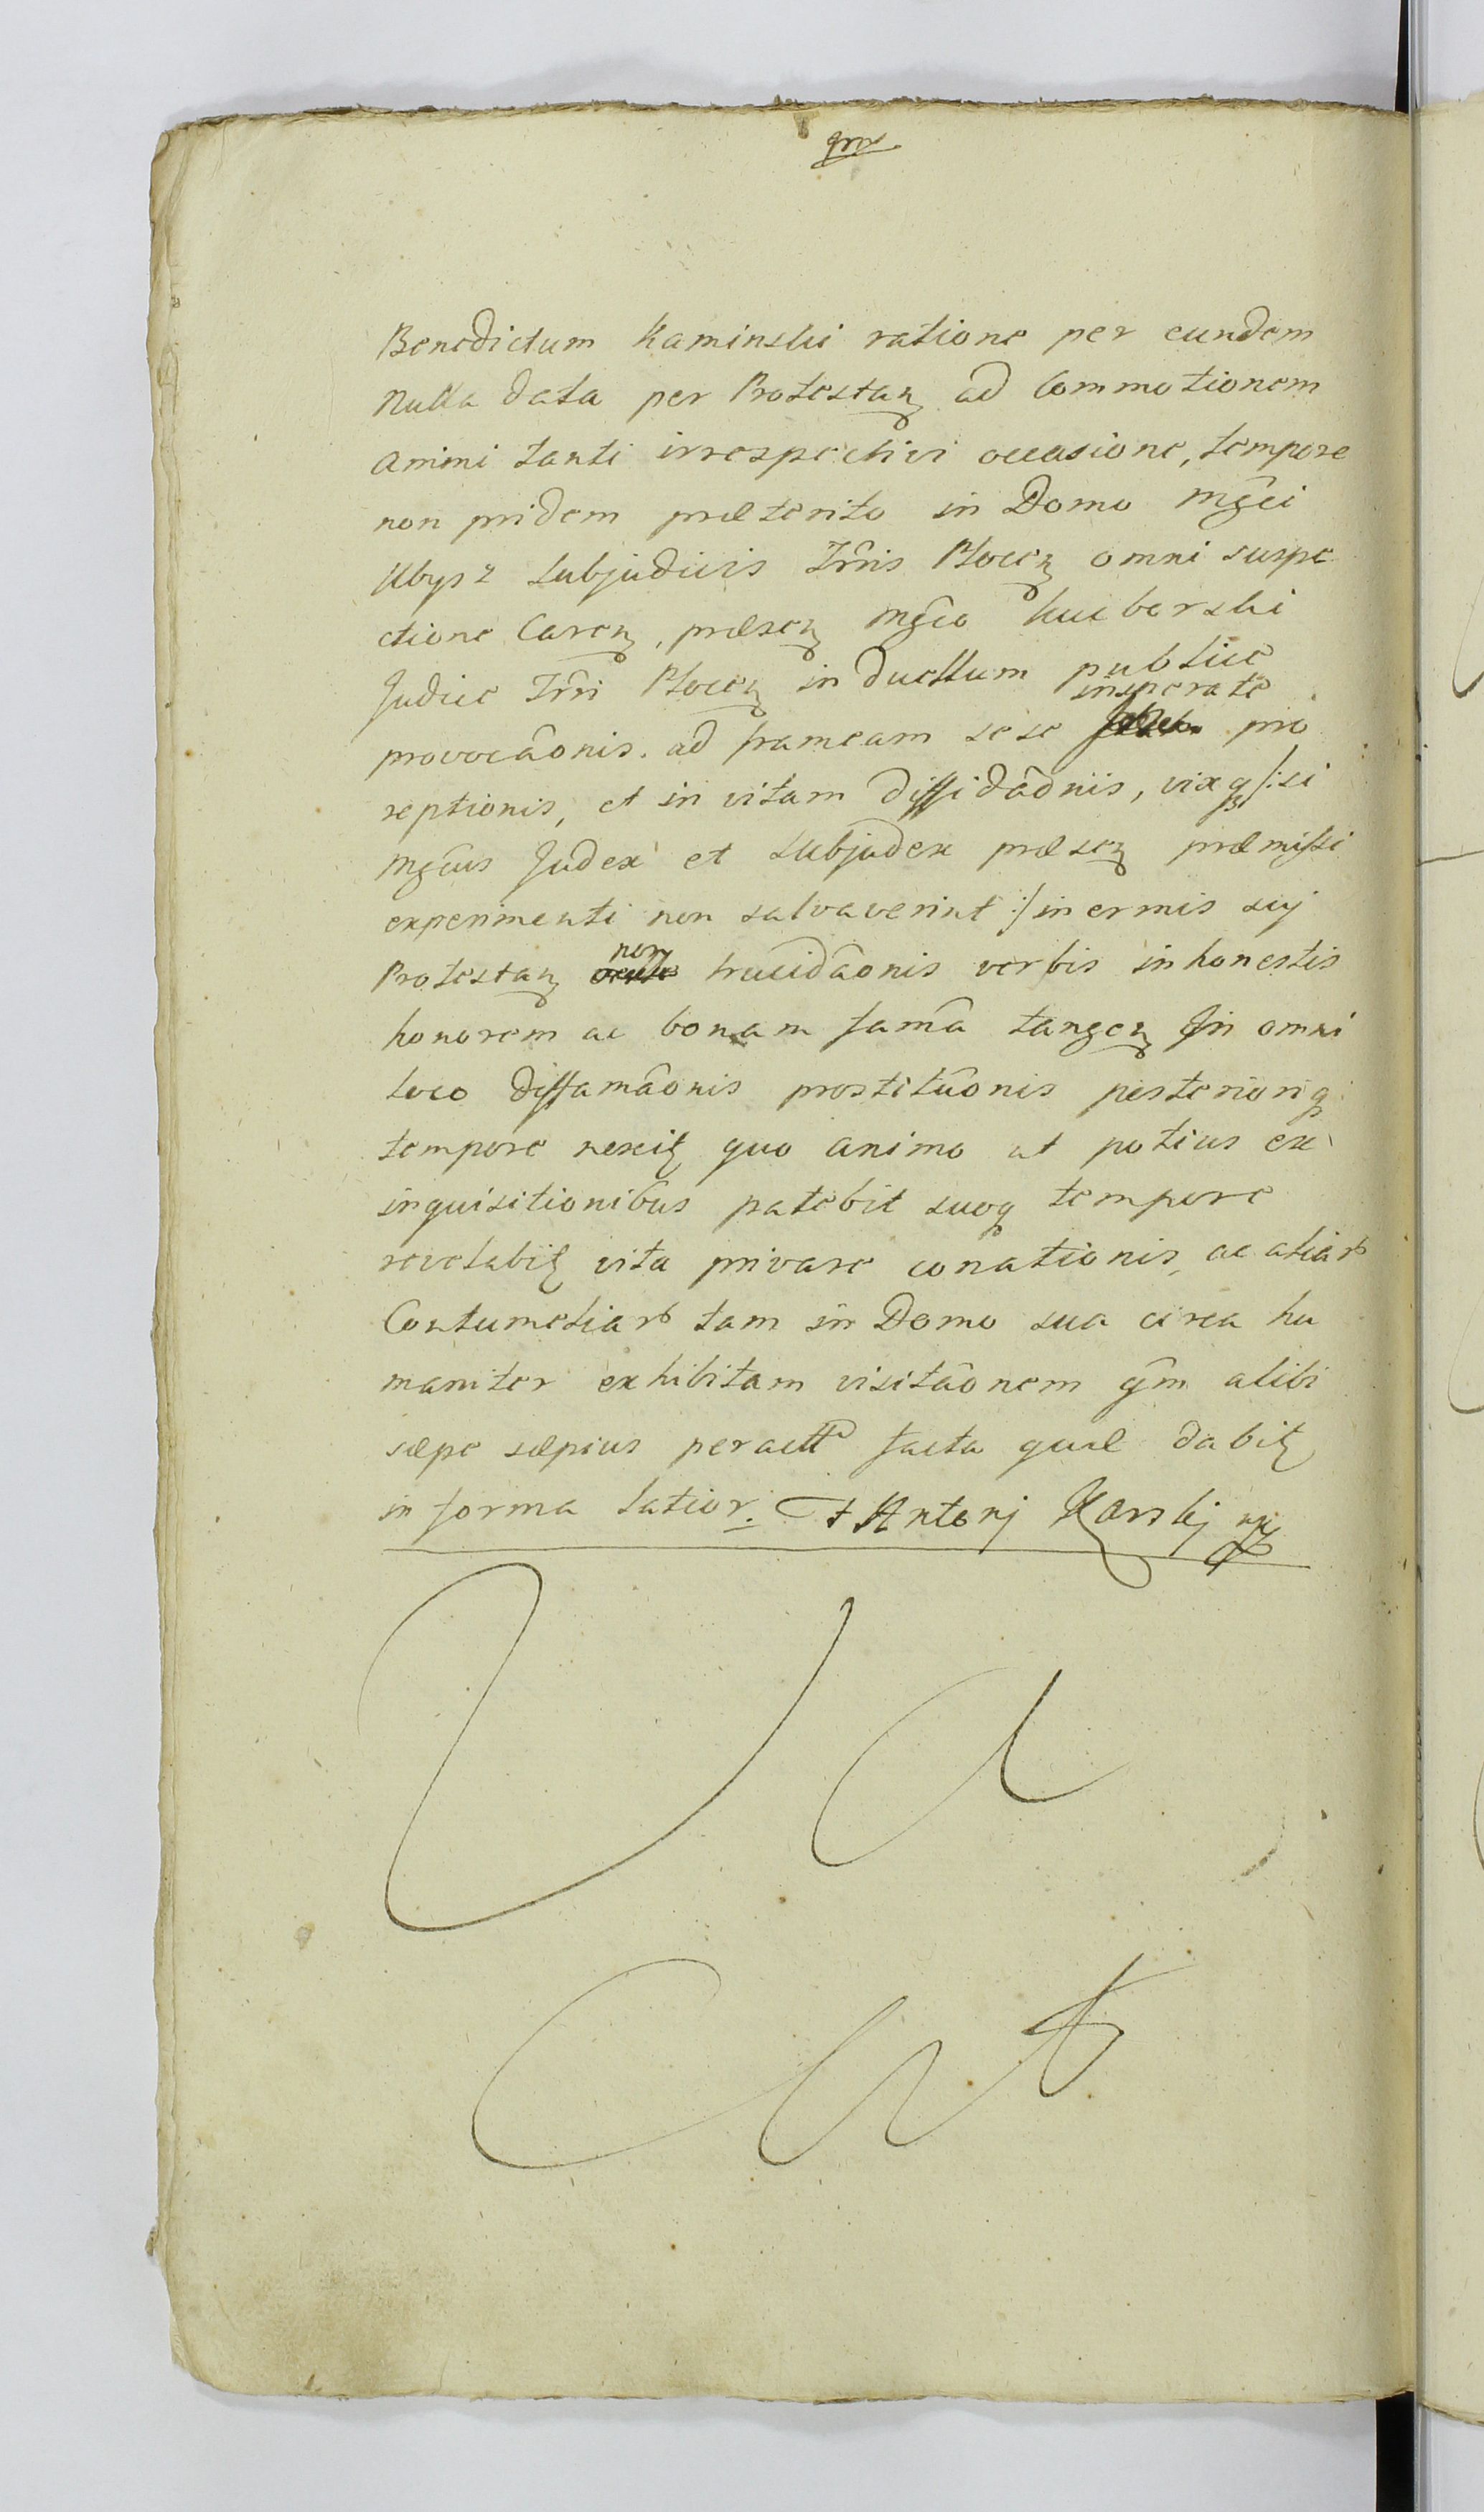 Benedictum Kaminski ratione per eundem
nulla data per Protestan ad Commotionem
animi tanti irrespectivi occasione, tempore
non pridem præterito in Domo Mgci
subjudicis Trris Plocen omni suspe
ctione Caren, præsen Mgco
Judice Trri Plocen in duellum publice
provocãonis. ad frameam sese insperate pro
reptionis, et in vitam diffidãonis, vixq /:si
Mgcus Judex et subjudex præsen præmissi
experimenti non salvaverint :/ inermis sij
Protestan non trucidãonis verbis inhonestis
honorem ac bonam famã tangen In omni
loco diffamãonis prostitũonis posterioriq
tempore nescit quo animo ut potius ex
inquisitionibus patebit suoq tempore
revelabit vita privare conationis, ac aliar
Contumeliar tam in Domo sua circa hu
maniter exhibitam visitãonem qm alibi
sæpe sæpius peractt facta quæ dabit
in forma latior. Antonj Karskj mp